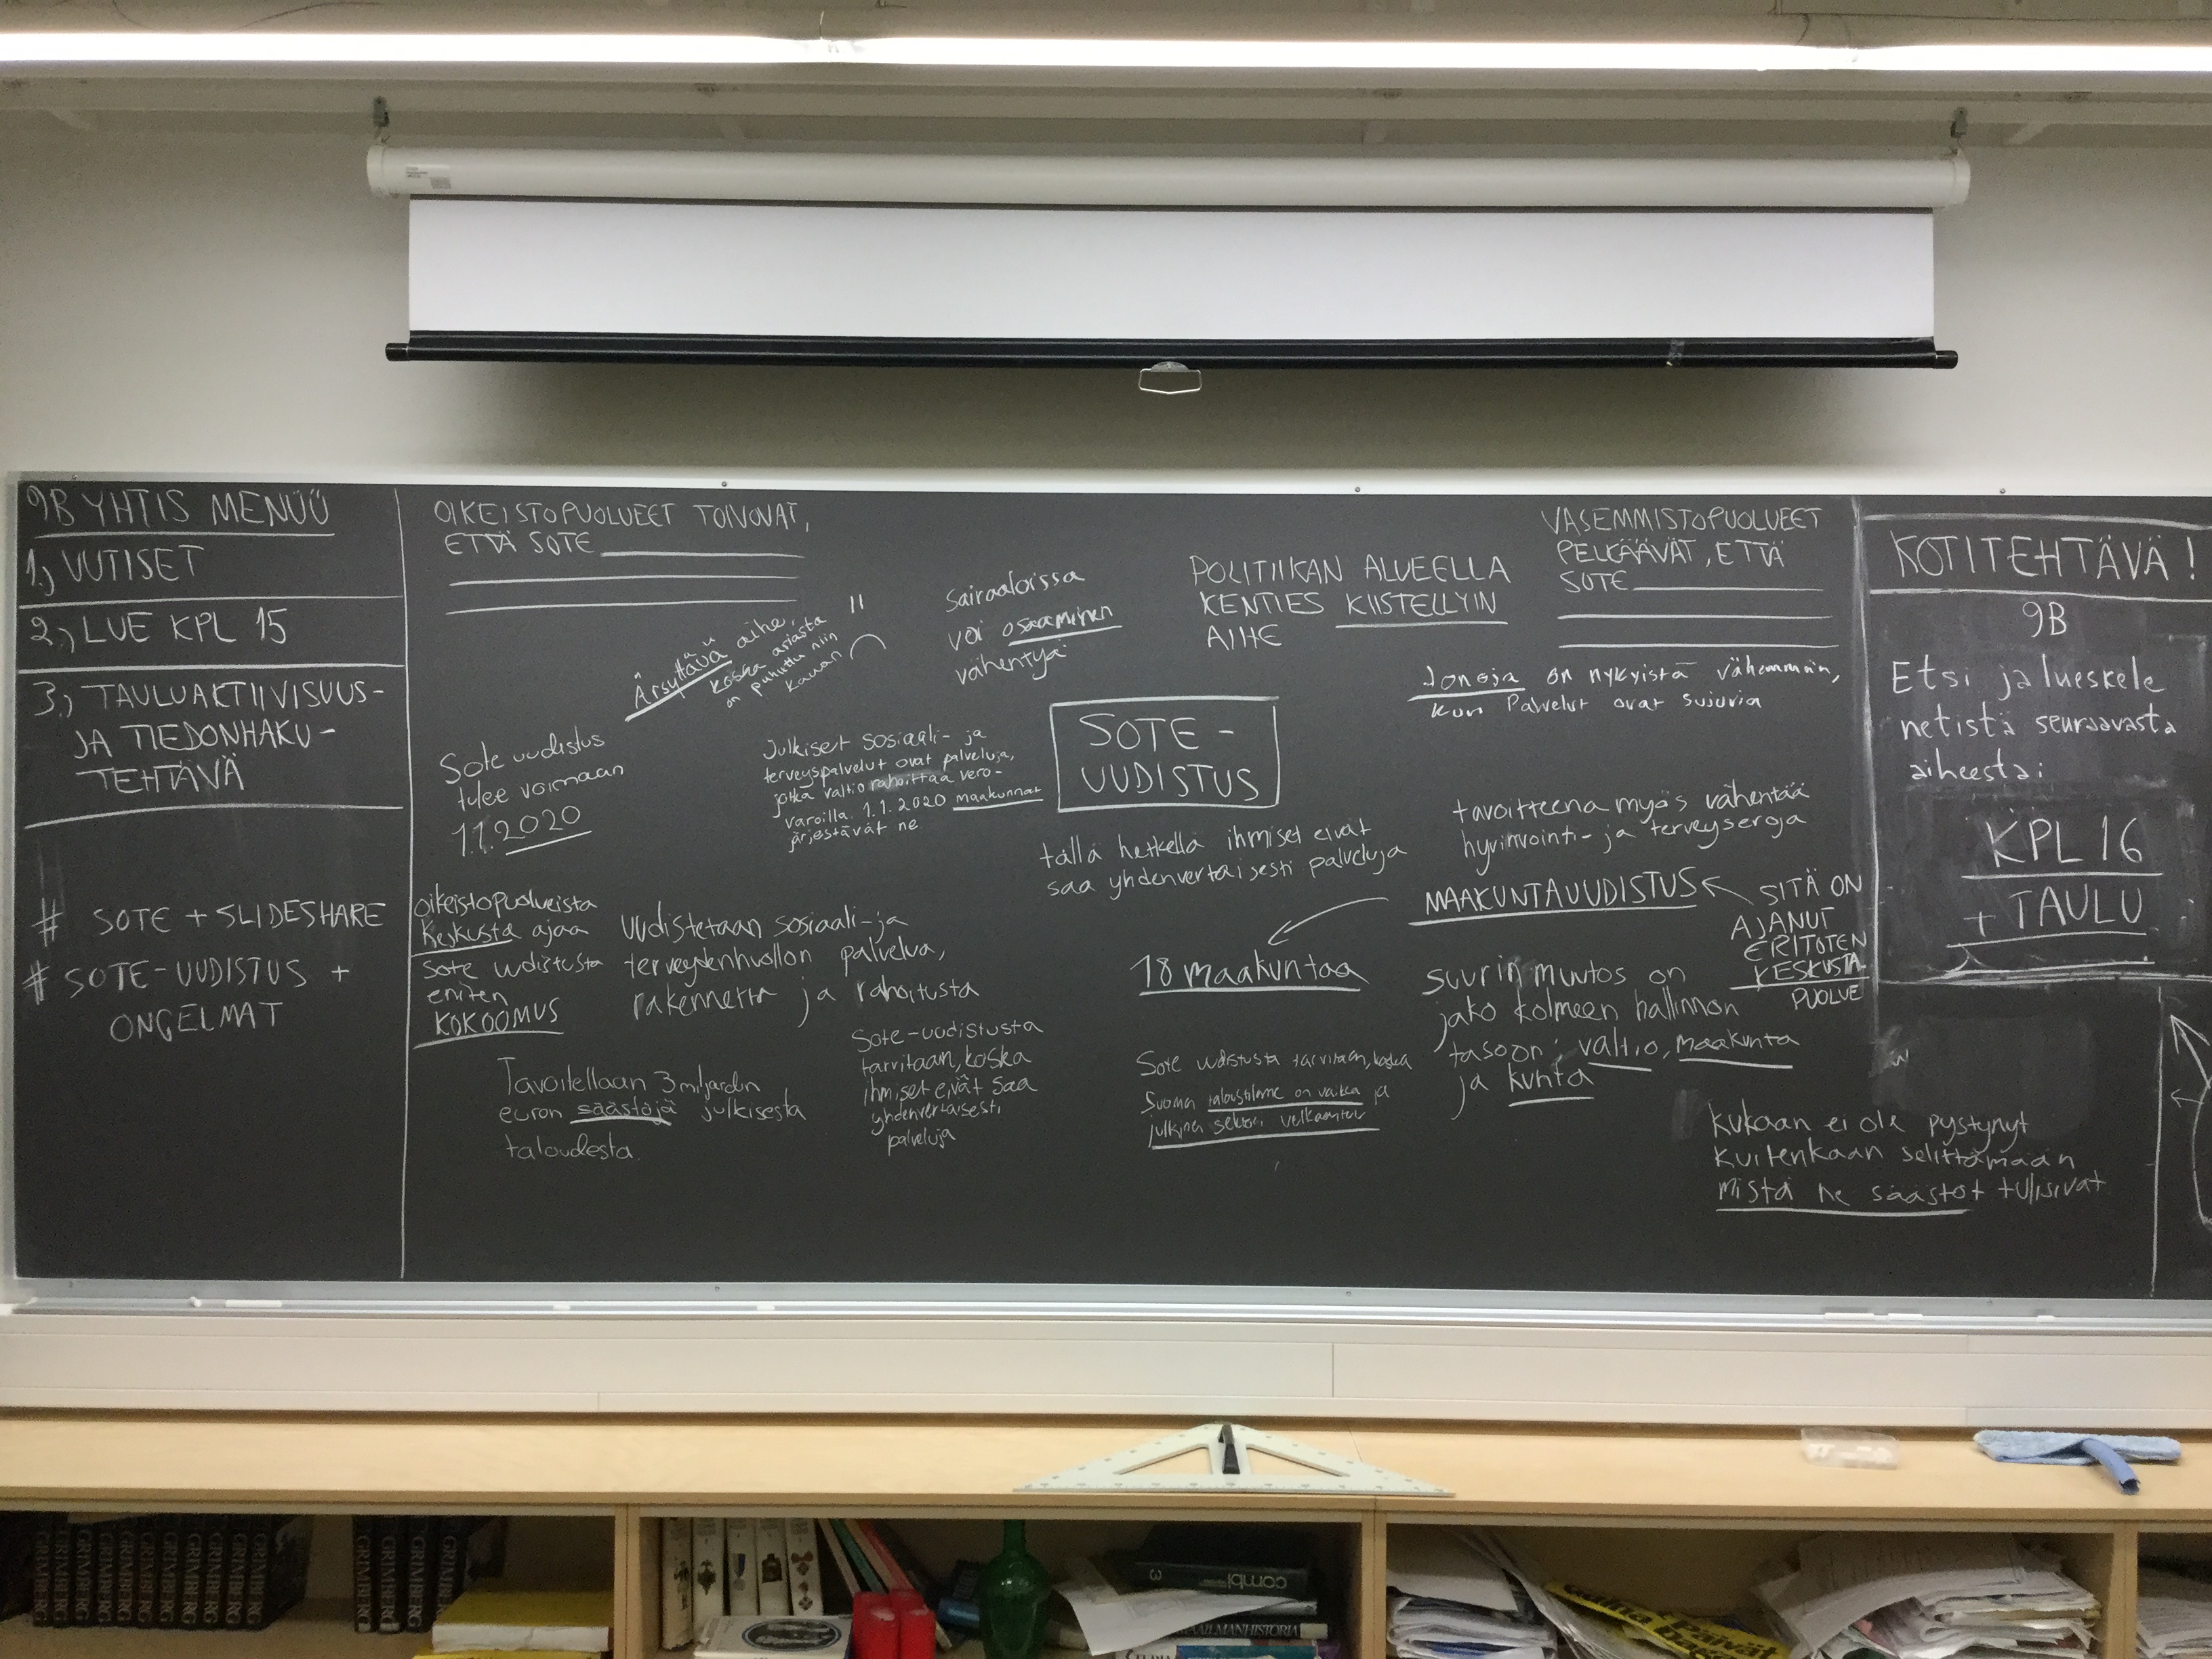 9B YHTIS MENÜÜ
1.) UUTISET
2.) LUE KPL 15
3.) TAULUAKTIIVISUUS-
JA TIEDONHAKU-
TEHTÄVÄ
# SOTE + SLIDESHARE
# SOTE-UUDISTUS +
ONGELMAT
OIKEISTOPUOLUEET TOIVOVAT,
ETTÄ SOTE
Ärsyttävä aihe,
koska asiasta
on puhuttu niin
kauan
Sairaaloissa
voi osaaminen
vähentyä
POLITIIKAN ALUEELLA
KENTIES KIISTELLYIN
AIHE
VASEMMISTOPUOLUEET
PELKÄÄVÄT, ETTÄ
SOTE
Jonoja on nykyistä vähemmän,
kun Palvelut ovat sujuvia
Sote uudistus
tulee voimaan
1.1.2020
Julkiset sosiaali- ja
terveyspalvelut ovat palveluja,
jotka valtio rahoittaa vero-
varoilla. 1.1.2020 maakunnat
järjestävät ne
SOTE-
UUDISTUS
tällä hetkellä ihmiset eivät
saa yhdenvertaisesti palveluja
tavoitteena myös vähentää
hyvinvointi- ja terveyseroja
MAAKUNTAUUDISTUS
SITÄ ON
AJANUT
ERITOTEN
KESKUSTA
PUOLUE
18 maakuntaa
oikeistopuolueista
Keskusta ajaa
Sote uudistusta
eniten
KOKOOMUS
Uudistetaan sosiaali-ja
terveydenhuollon palvelua,
rakennetta ja rahoitusta
Tavoitellaan 3 miljardin
euron säästöjä julkisesta
taloudesta.
Sote-uudistusta
tarvitaan, koska
ihmiset eivät saa
yhdenvertaisesti
palveluja
Sote uudistusta tarvitaan, koska
Suomen taloustilanne on vaikea ja
julkinen sektori velkaantuu
suurin muutos on
jako kolmeen hallinnon
tasoon: valtio, maakunta
ja kunta
kukaan ei ole pystynyt
kuitenkaan selittämään
mistä ne säästöt tulisivat
KOTITEHTÄVÄ!
9B
Etsi ja lueskele
netistä seuraavasta
aiheesta:
KPL 16
+ TAULU
GRIMBERG
GRIMBERG
GRIMBERG
GRIMBERG
GRIMBERG
GRIMBERG
GRIMBERG
GRIMBERG
GRIMBERG
GRIMBERG
GRIMBERG
combi 3